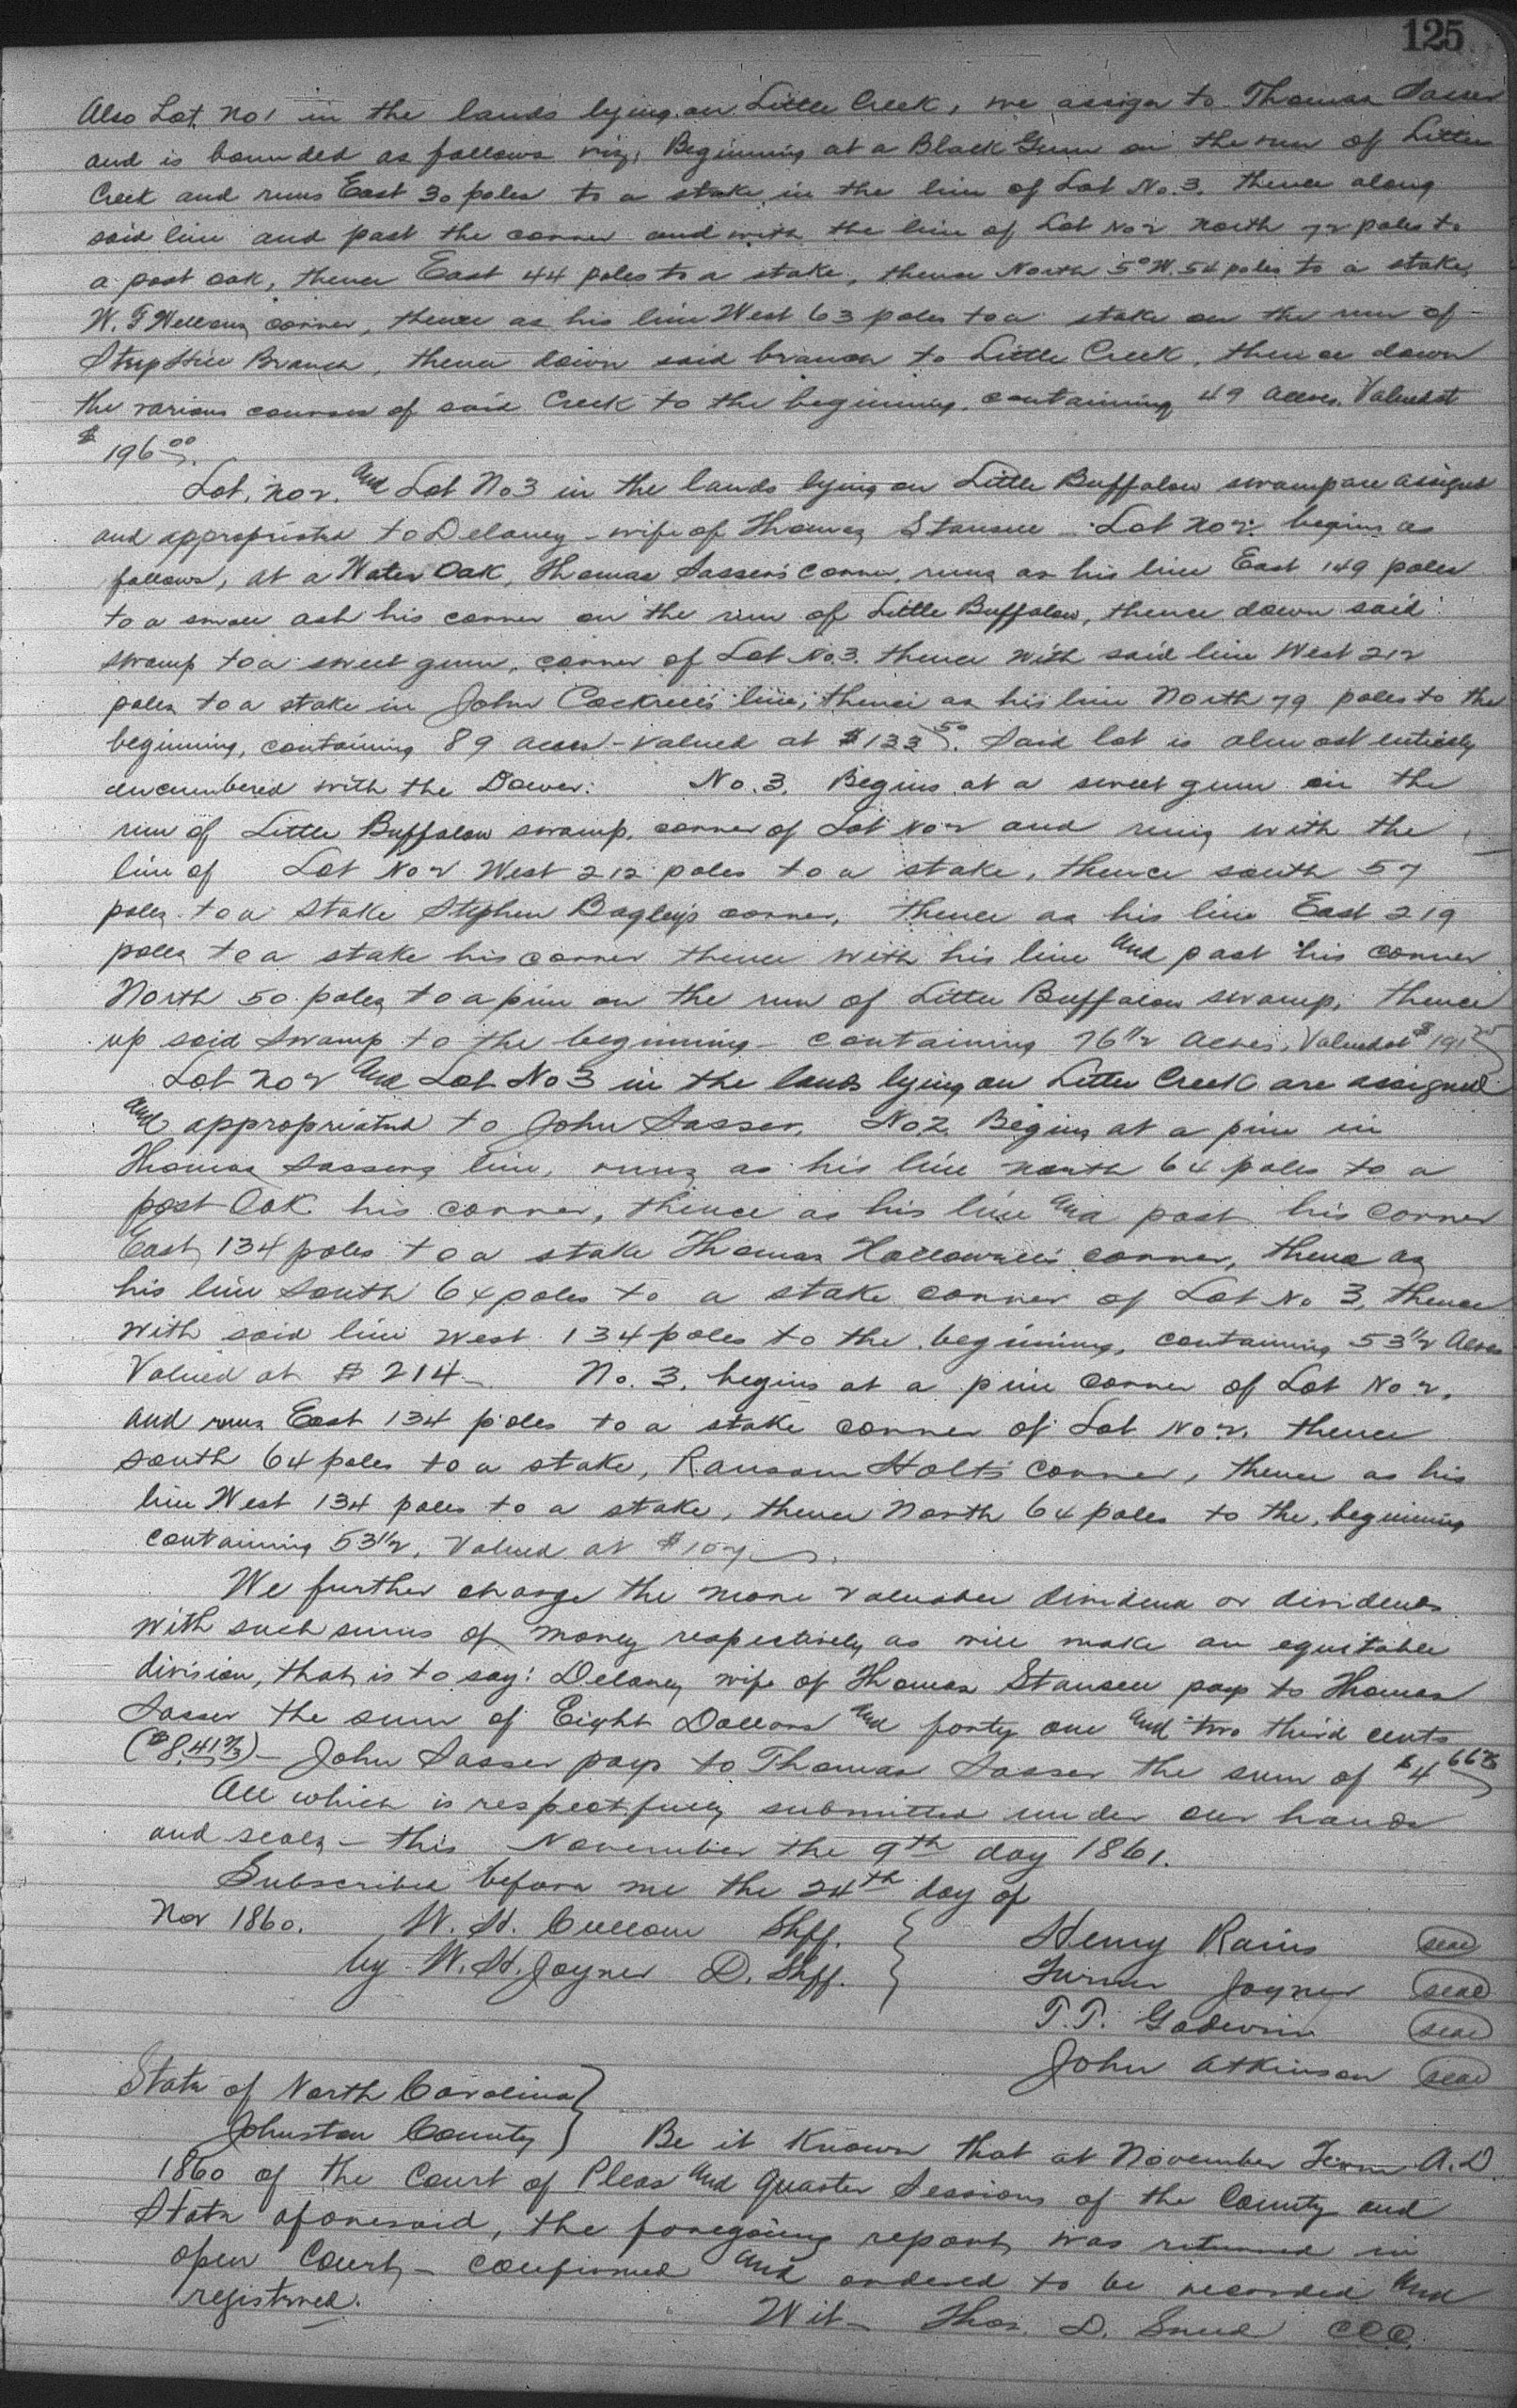 125
Also Lot No 1 in the lands lying on Little Creek, we assign to Thomas Sasser
and is bounded as follows viz; Beginning at a Black Gum on the run of Little
Creek and runs East 30 poles to a stake in the line of Lot No. 3. thence along
said line and past the corner and with the line of Lot No 2 North 72 poles to
a post oak, thence East 44 poles to a stake, thence North 5° W. 54 poles to a stake,
W. G Wellons corner, thence as his line West 63 poles to a stake on the run of
Branch, thence down said branch to Little Creek, thence down
the various courses of said Creek to the beginning. containing 49 acres. Valued at
$196 00.
Lot, No 2. and Lot No 3 in the lands lying on Little Buffalow swamp are assigned
and appropriated to Delaney - wife of Thomas Stansell - Lot No 2. begins as
follows, at a Water Oak, Thomas Sasser's corner, runs as his line East 149 poles
to a small ash his corner on the run of Little Buffalow, thence down said
swamp to a sweet gum, corner of Lot No. 3. thence with said line West 212
poles to a stake in John Cockrell's line, thence as his line North 79 poles to the
beginning, containing 89 acres - valued at $133 50. Said lot is almost entirely
encumbered with the Dower. No. 3. Begins at a sweet gum on the
run of Little Buffalow swamp, corner of Lot No 2 and runs with the
line of Lot No 2 West 212 poles to a stake, thence south 57
poles to a stake Stephen Bagley's corner, thence as his line East 219
poles to a stake his corner thence with his line and past his corner
North 50 poles to a pine on the run of Little Buffalow swamp, thence
up said swamp to the beginning - containing 76 1/2 acres, Valued at $191 25
Lot No 2 and Lot No 3 in the lands lying on Little Creek are assigned
and appropriated to John Sasser. No 2. Begins at a pine in
Thomas Sassers line, runs as his line north 64 poles to a
post Oak his corner, thence as his line and past his corner
East, 134 poles to a stake Thomas Hollowell's corner, thence as
his line South 64 poles to a stake corner of Lot No 3, thence
with said line West 134 poles to the beginning, containing 53 1/2 acres
Valued at $214 - No. 3, begins at a pine corner of Lot No 2,
and runs East 134 poles to a stake corner of Lot No 2. thence
south 64 poles to a stake, Ransom Holt's corner, thence as his
line West 134 poles to a stake, thence North 64 poles to the, beginning
containing 53 1/2, Valued at $107.
We further charge the more valuable dividend or dividends
with such sums of money respectively as will make an equitable
division, that is to say: Delaney wife of Thomas Stansell pays to Thomas
Sasser the sum of Eight Dollars and forty one and two third cents
($8.41 2/3) - John Sasser pays to Thomas Sasser the sum of $4 66 2/3
All which is respectfully submitted under our hands
and seals - this November the 9th day 1861.
Subscribed before me the 24th day of
Nov 1860. W. H. Cullom Shff.
by W. H. Joyner D. Shff.
Henry Rains seal
Turner Joyner seal
T. T. Godwin seal
John Atkinson seal
State of North Carolina
Johnston County } Be it Known that at November Term A.D.
1860 of the Court of Pleas and Quarter Sessions of the County and
State aforesaid, the foregoing report, was returned in
open Court, - confirmed and ordered to be recorded and
registered.
Wit - Thos. D. Snead CCC.